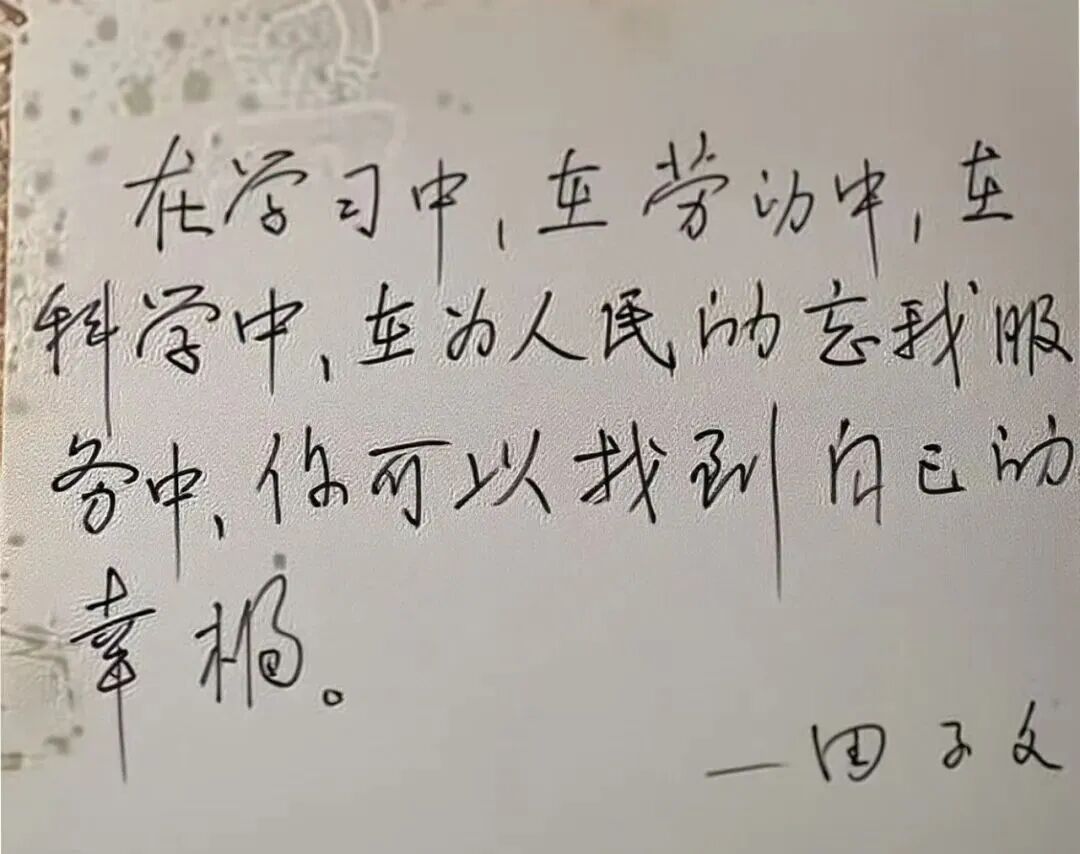 在学习中,在劳动中,在
科学中,在为人民的忘我服
务中,你可以找到自己的
幸福。
—田子文